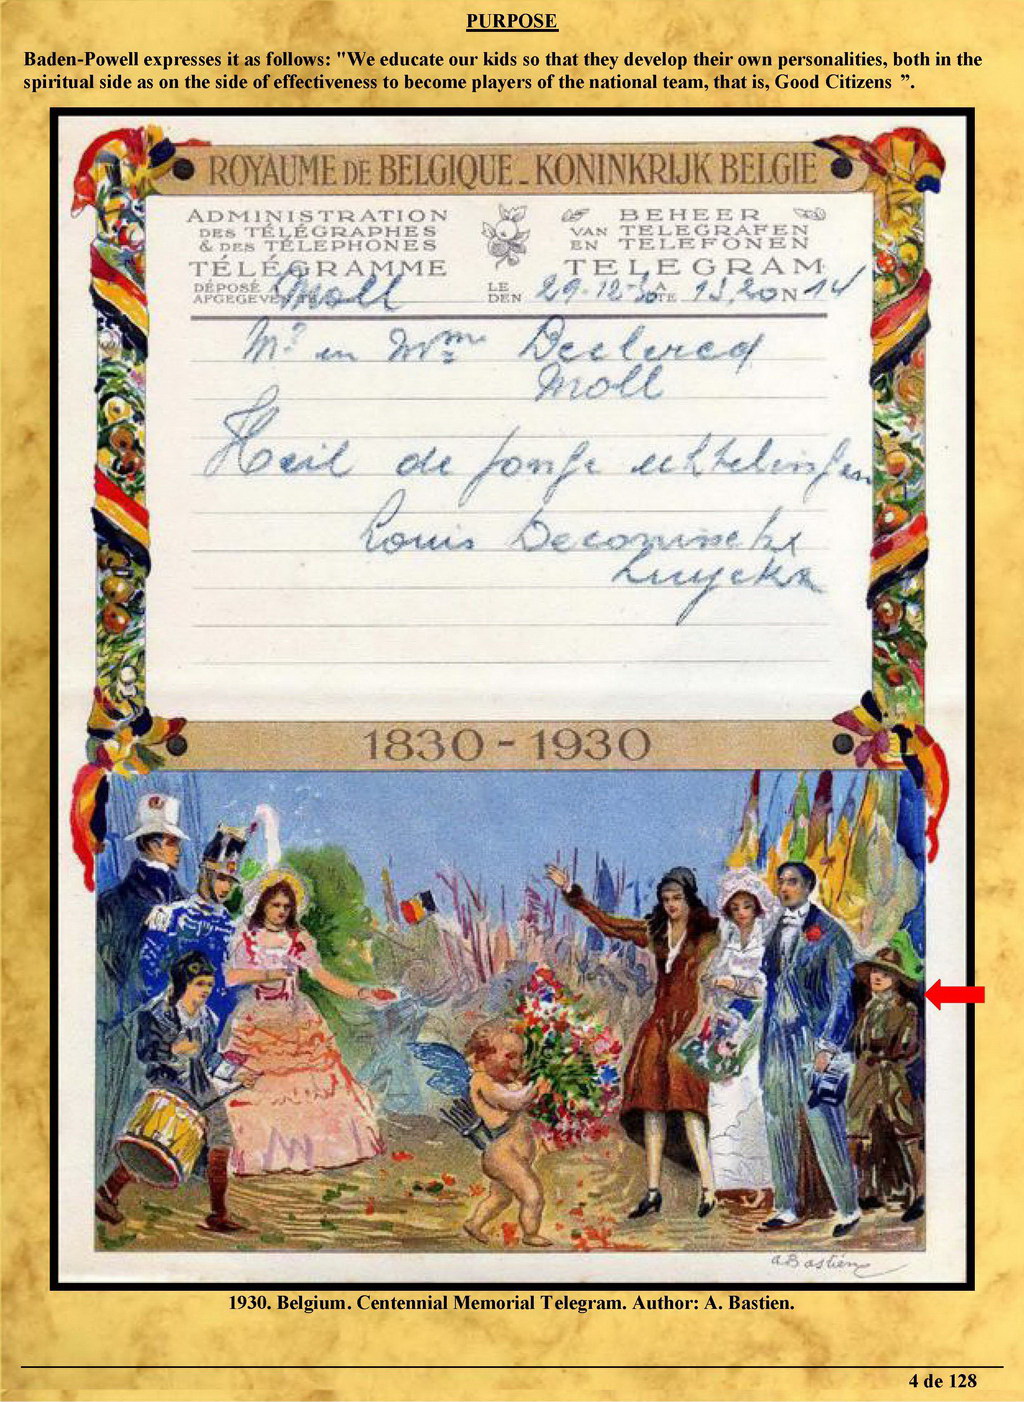 PURPOSE
Baden-Powell expresses it as follows: "We educate our kids so that they develop their own personalities, both in the
spiritual side as on the side of effectiveness to become players of the national team, that is, Good Citizens ”.
ROYAUME DE BELGIQUE - KONINKRIJK BELGIE
ADMINISTRATION
DES TÉLÉGRAPHES
& DES TÉLEPHONES
TÉLÉGRAMME
BEHEER
VAN TELEGRAFEN
EN TELEFONEN
TELEGRAM
DÉPOSÉ A
AFGEGEVEN TE
Moll
LE
DEN
29-12-30
A
TE
13,20 N 14
Mr en Mme Declercq
Moll
Heil de jonge echtelingen
Louis Deconincke
Luyckx
1830 - 1930
A Bastien
1930. Belgium. Centennial Memorial Telegram. Author: A. Bastien.
4 de 128